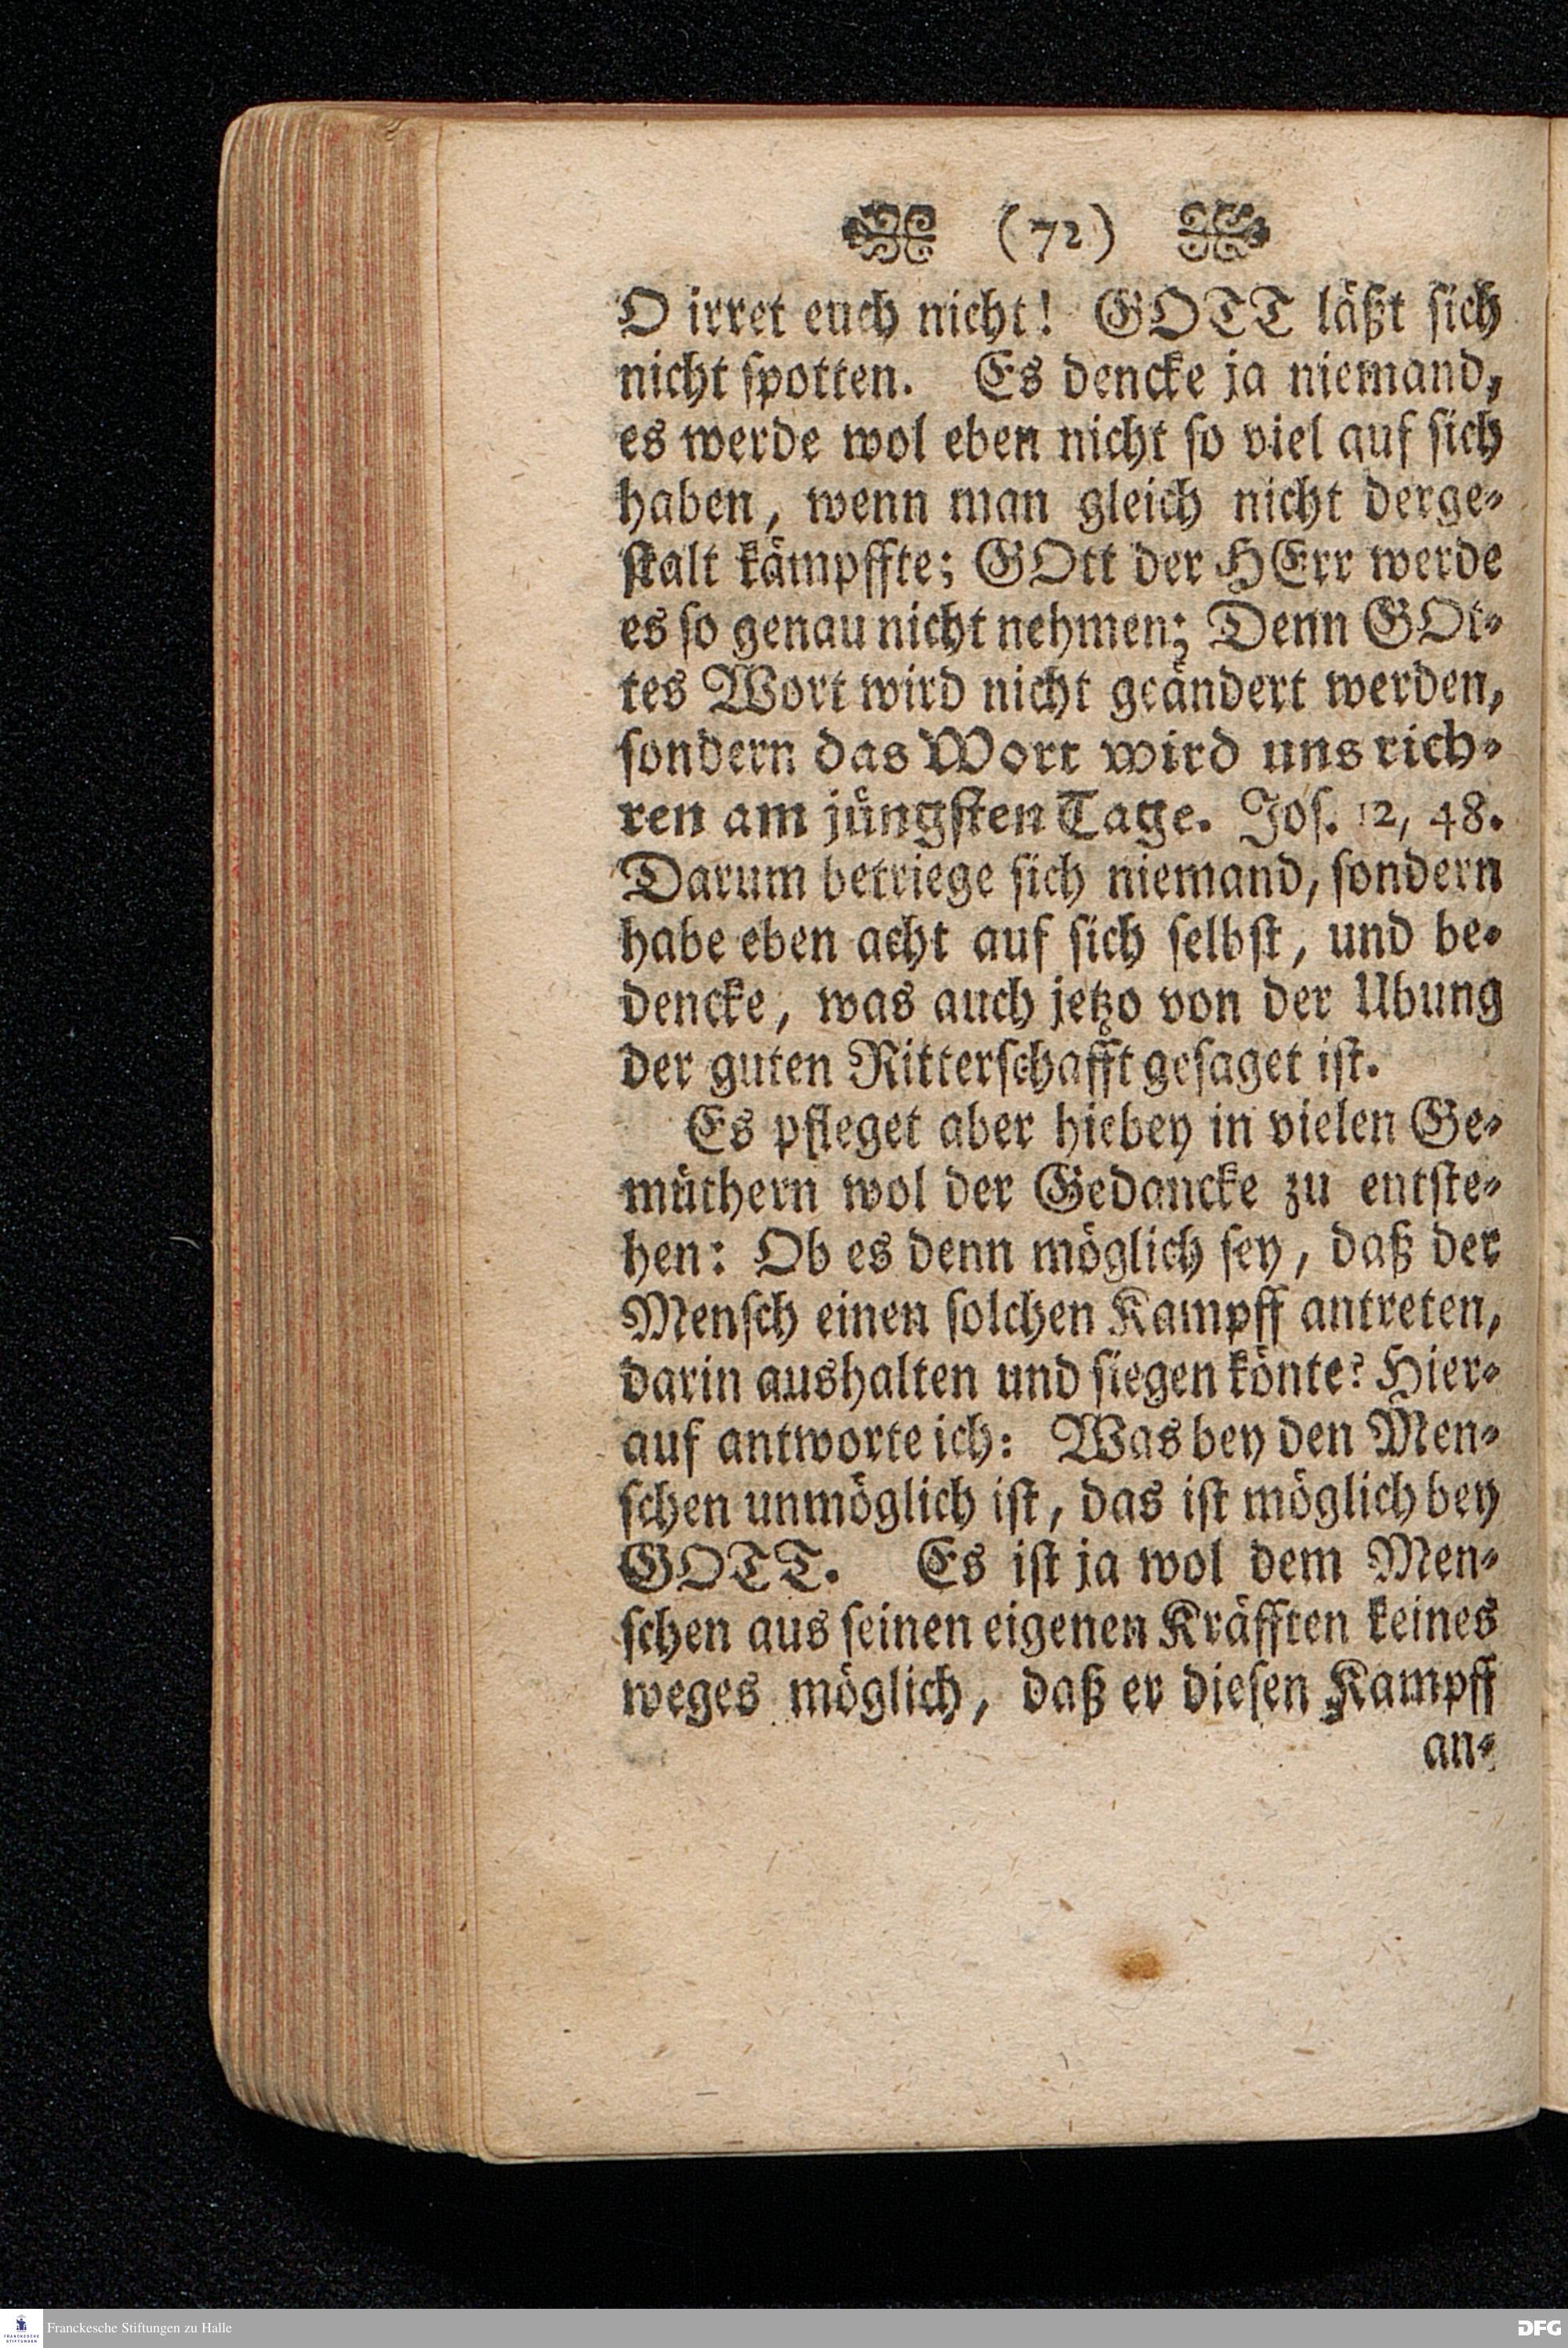 (72)
O irret euch nicht! GOTT läßt sich
nicht spotten. Es dencke ja niemand,
es werde wol eben nicht so viel auf sich
haben, wenn man gleich nicht derge-
stalt kämpffte; GOtt der HErr werde
es so genau nicht nehmen; Denn GOt-
tes Wort wird nicht geändert werden,
sondern das Wort wird uns rich-
ten am jüngsten Tage. Jos. 12, 48.
Darum betriege sich niemand, sondern
habe eben acht auf sich selbst, und be-
dencke, was auch jetzo von der Ubung
der guten Ritterschafft gesaget ist.
Es pfleget aber hiebey in vielen Ge-
müthern wol der Gedancke zu entste-
hen: Ob es denn möglich sey, daß der
Mensch einen solchen Kampff antreten,
darin aushalten und siegen könte? Hier-
auf antworte ich: Was bey den Men-
schen unmöglich ist, das ist möglich bey
GOTT. Es ist ja wol dem Men-
schen aus seinen eigenen Kräfften keines
weges möglich, daß er diesen Kampff
an-
Franckesche Stiftungen zu Halle
DFG